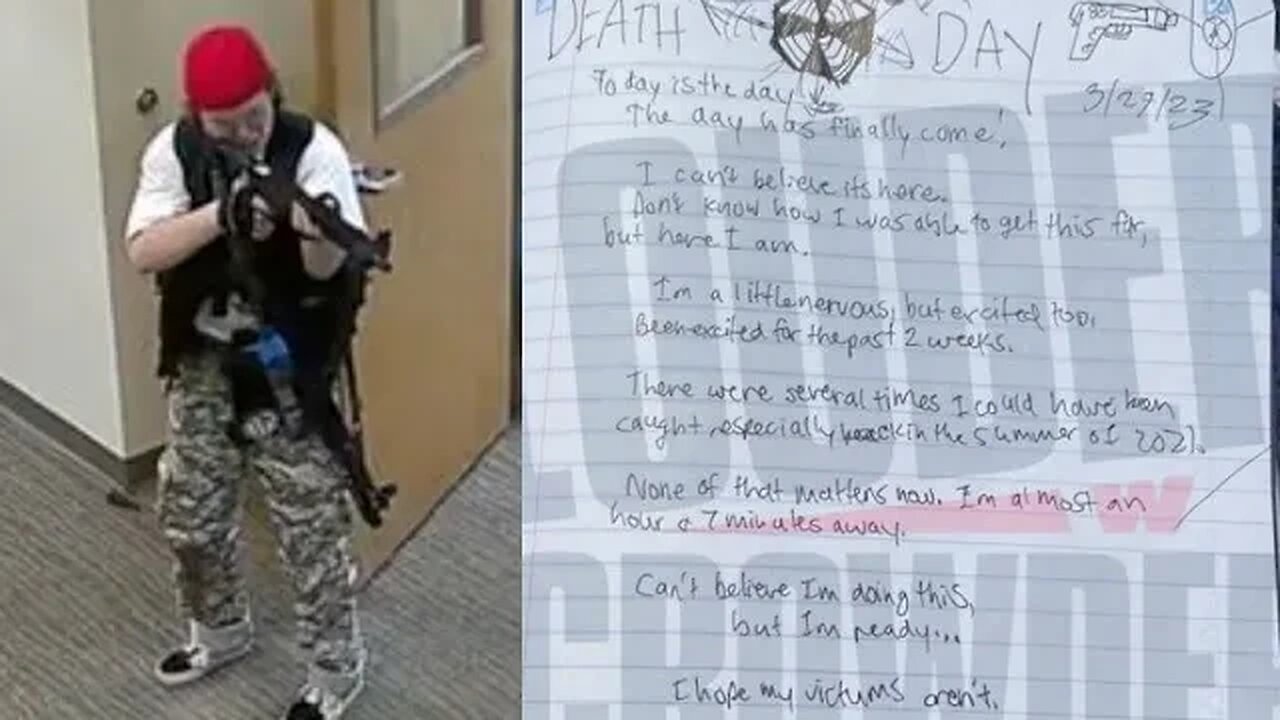 DEATH DAY
3/27/23
Today is the day
The day has finally come!
I can't believe its here.
Don't know how I was able to get this far,
but here I am.
Im a little nervous, but excited too.
Been excited for the past 2 weeks.
There were several times I could have been
caught especially back in the summer of 2021.
None of that matters now. Im almost an
hour & 7 minutes away.
Can't believe Im doing this,
but Im ready...
I hope my victums aren't.
LOUDER
W
CROWDER